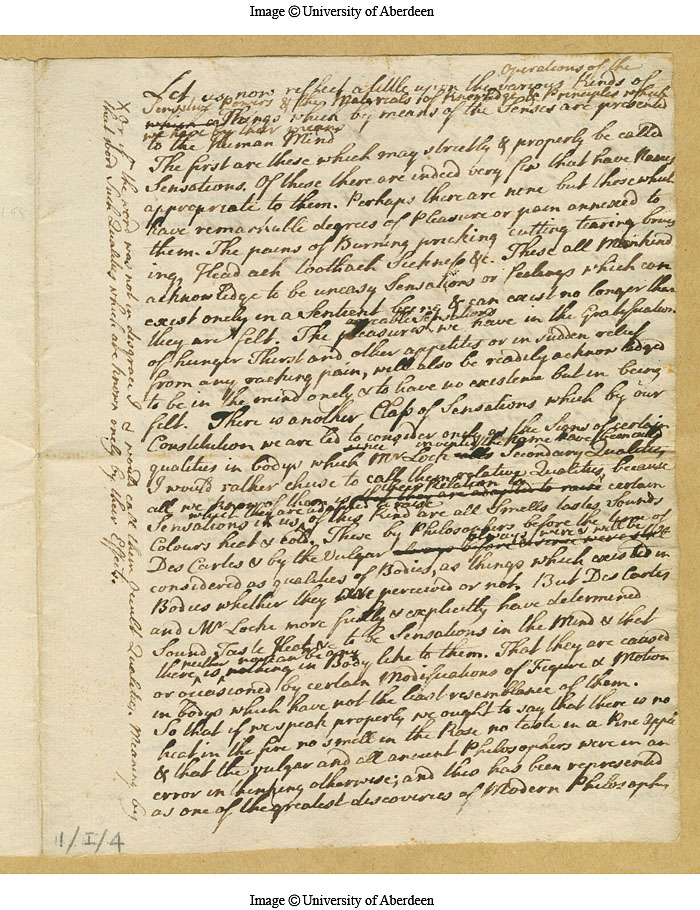 Image © University of Aberdeen
Operations of the
Let us now reflect a little upon the various Kinds of
Powers & the Materials of Knowledge & Principles which
which a Things which by means of the Senses are presented
we have by their means
to the Human Mind
The first are these which may strictly & properly be called
Sensations. Of these there are indeed very few that have Names
appropriate to them. Perhaps there are none but those which
have remarkable degrees of Pleasure or pain annexed to
them. The pains of Burning pricking cutting tearing bruis
ing, Head ach toothach Sickness &c. These all Mankind
acknowledge to be uneasy Sensations or feelings which can
exist onely in a Sentient being & can exist no longer than
agreable Sensations
they are felt. The pleasures we have in the Gratification
of hunger Thirst and other appetites or in sudden relief
from any racking pain, will also be readily acknowledged
to be in the mind onely & to have no existence but in being
felt. There is another Class of Sensations which by our
Constitution we are led to consider only as the Signs of certain
since invented the Name have been called
qualities in bodys which Mr Locke calls Secondary Qualities
I would rather chuse to call them relative Qualities, because
their Relation to
all we know of them is that they are adapted to raise certain
which they are adapted to raise
Sensations in us, of this kind are all Smells tastes Sounds
Colours heat & cold. These by Philosophers before the time of
always were & will be
Des Cartes & by the Vulgar
considered as qualities of Bodies, as things which existed in
Bodies whether they are perceived or not, But Des Cartes
and Mr Locke more fully & explicitly have determined
Sound Taste Heat &c to be Sensations in the Mind & that
neither nor can be any
there is nothing in Body like to them. That they are caused
or occasioned by certain Modifications of Figure & Motion
in bodys which have not the least resemblance of them.
So that if we speak properly we ought to say that there is no
heat in the fire no smell in the Rose no taste in a Pine apple
& that the vulgar and all ancient Philosophers were in an
error in thinking otherwise; and this has been represented
as one of the greatest discoveries of Modern Philosoph
X or if the word was not in disgrace I would call them Occult Qualities. Meaning by
that word Such Qualitys which are known onely by their Effects.
11/I/4
Image © University of Aberdeen